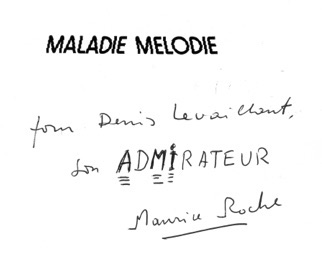 MALADIE MELODIE
pour Denis Levaillant,
son ADMiRATEUR
Maurice Roche